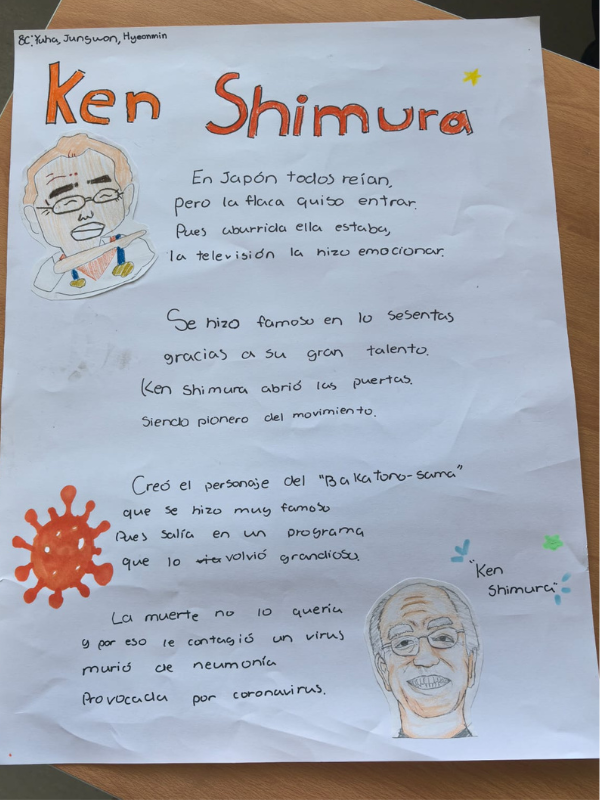 8C: Yuha, Jungwon, Hyeonmin
Ken Shimura
En Japón todos reían,
pero la flaca quiso entrar.
Pues aburrida ella estaba,
la televisión la hizo emocionar.
Se hizo famoso en lo sesentas
gracias a su gran talento.
Ken Shimura abrió las puertas.
Siendo pionero del movimiento.
Creó el personaje del "Bakatono-sama"
que se hizo muy famoso
Pues salía en un programa
que lo volvió grandioso.
"Ken
Shimura"
La muerte no lo quería
y por eso le contagió un virus
murió de neumonía
Provocada por coronavirus.